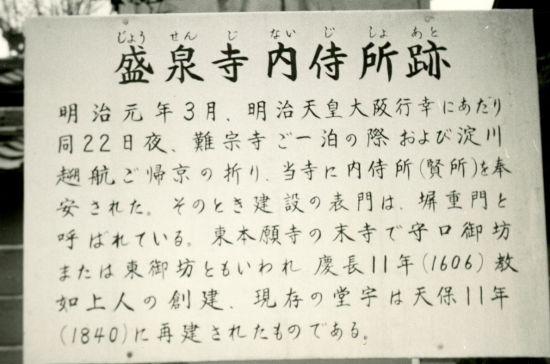 じょう せん じ ない じ しょ あと
盛泉寺内侍所跡
明治元年3月、明治天皇大阪行幸にあたり
同22日夜、難宗寺ご一泊の際および淀川
遡航ご帰京の折り、当寺に内侍所(賢所)を奉
安された。そのとき建設の表門は、塀重門と
呼ばれている。東本願寺の末寺で守口御坊
または東御坊ともいわれ 慶長11年(1606)教
如上人の創建、現存の堂宇は天保11年
(1840)に再建されたものである。